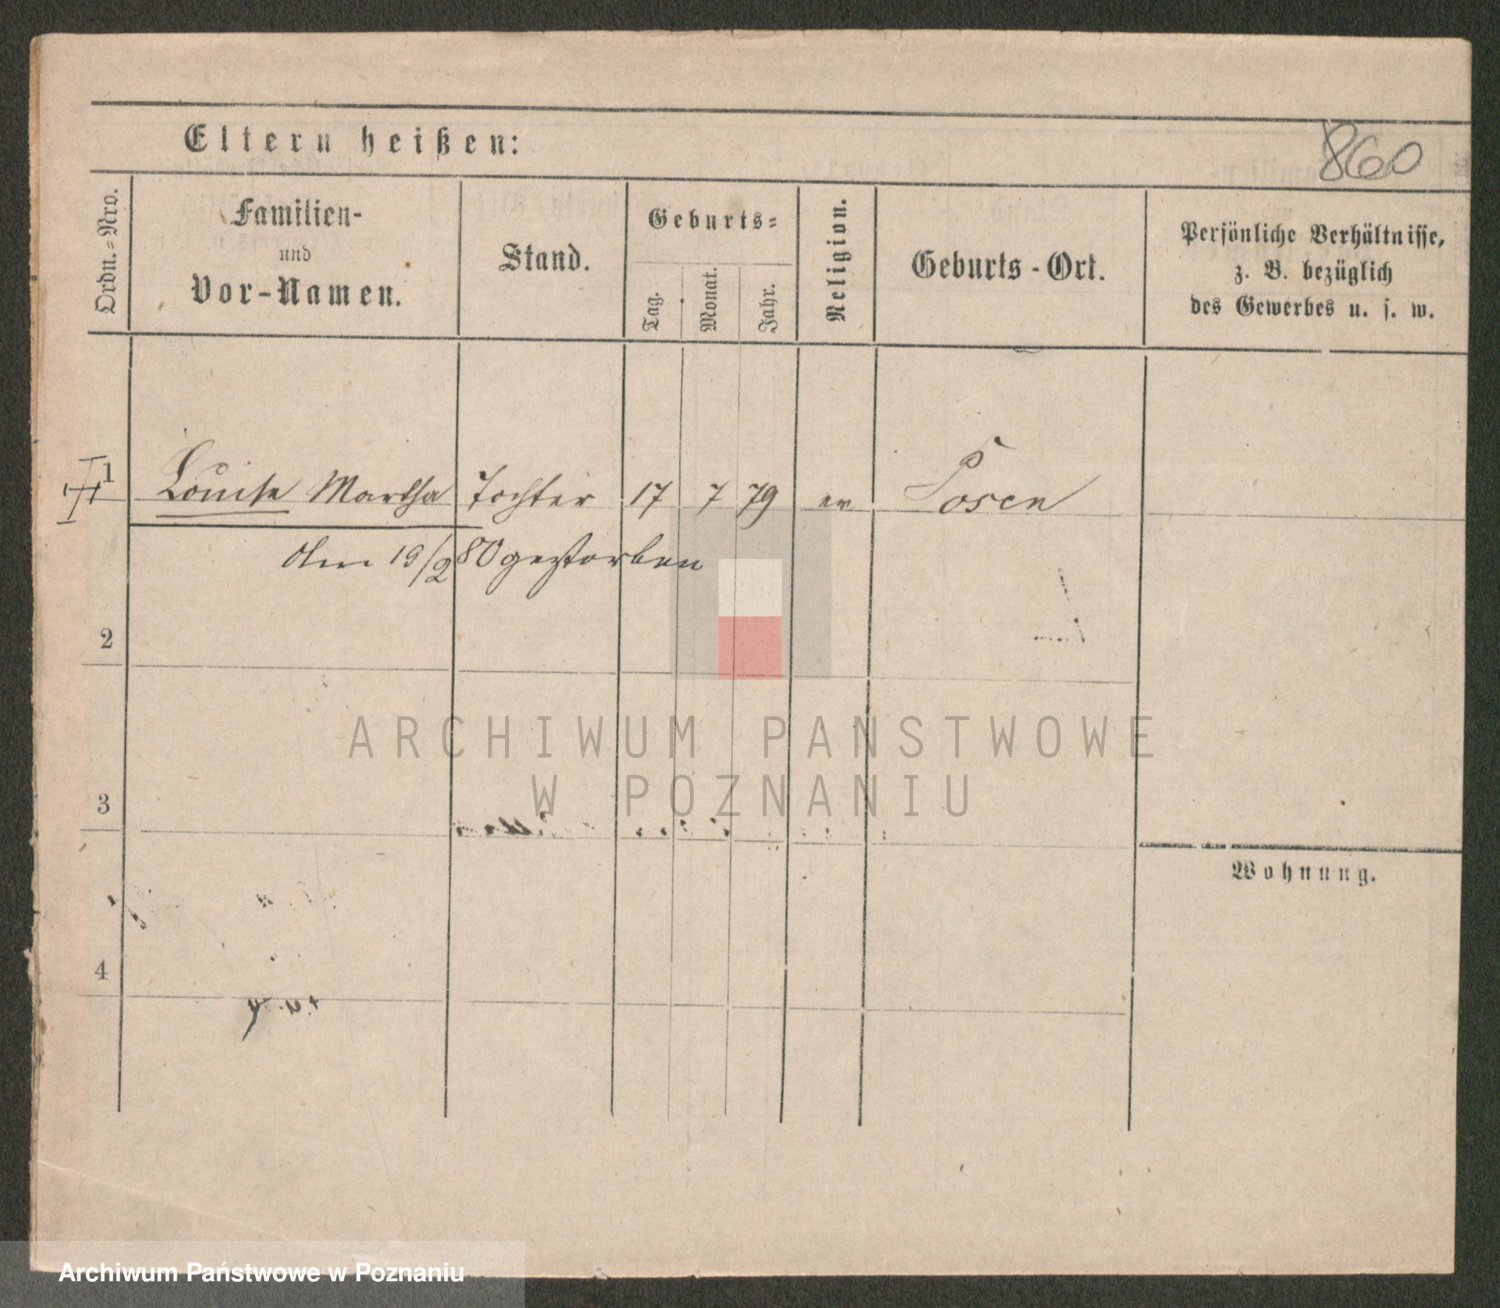 Eltern heißen:
860
Ordn.=Nro.
Familien-
und
Vor-Namen.
Stand.
Geburts=
Tag.
Monat.
Jahr.
Religion.
Geburts-Ort.
Persönliche Verhältnisse,
z. B. bezüglich
des Gewerbes u. s. w.
1 Louise Martha Tochter 17 7 79 ev Posen
Am 19/2 80 gestorben
2
3
4
Wohnung.
ARCHIWUM PAŃSTWOWE
W POZNANIU
Archiwum Państwowe w Poznaniu